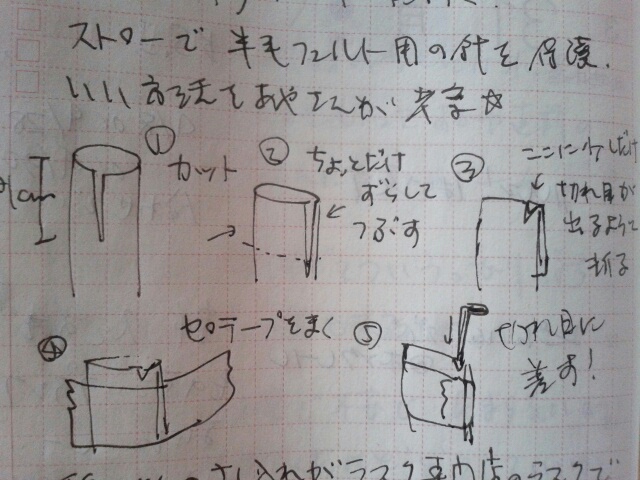 ストローで 羊毛フェルト用の針を保護.
いい方法をあやさんが考字☆
①
カット
1cm
②
ちょっとだけ
ずらして
つぶす
③
ここに少しだけ
切れ目が
出るように
折る
④
セロテープをまく
⑤
切れ目に
差す!
さし入れがラスク専門店のラスクで